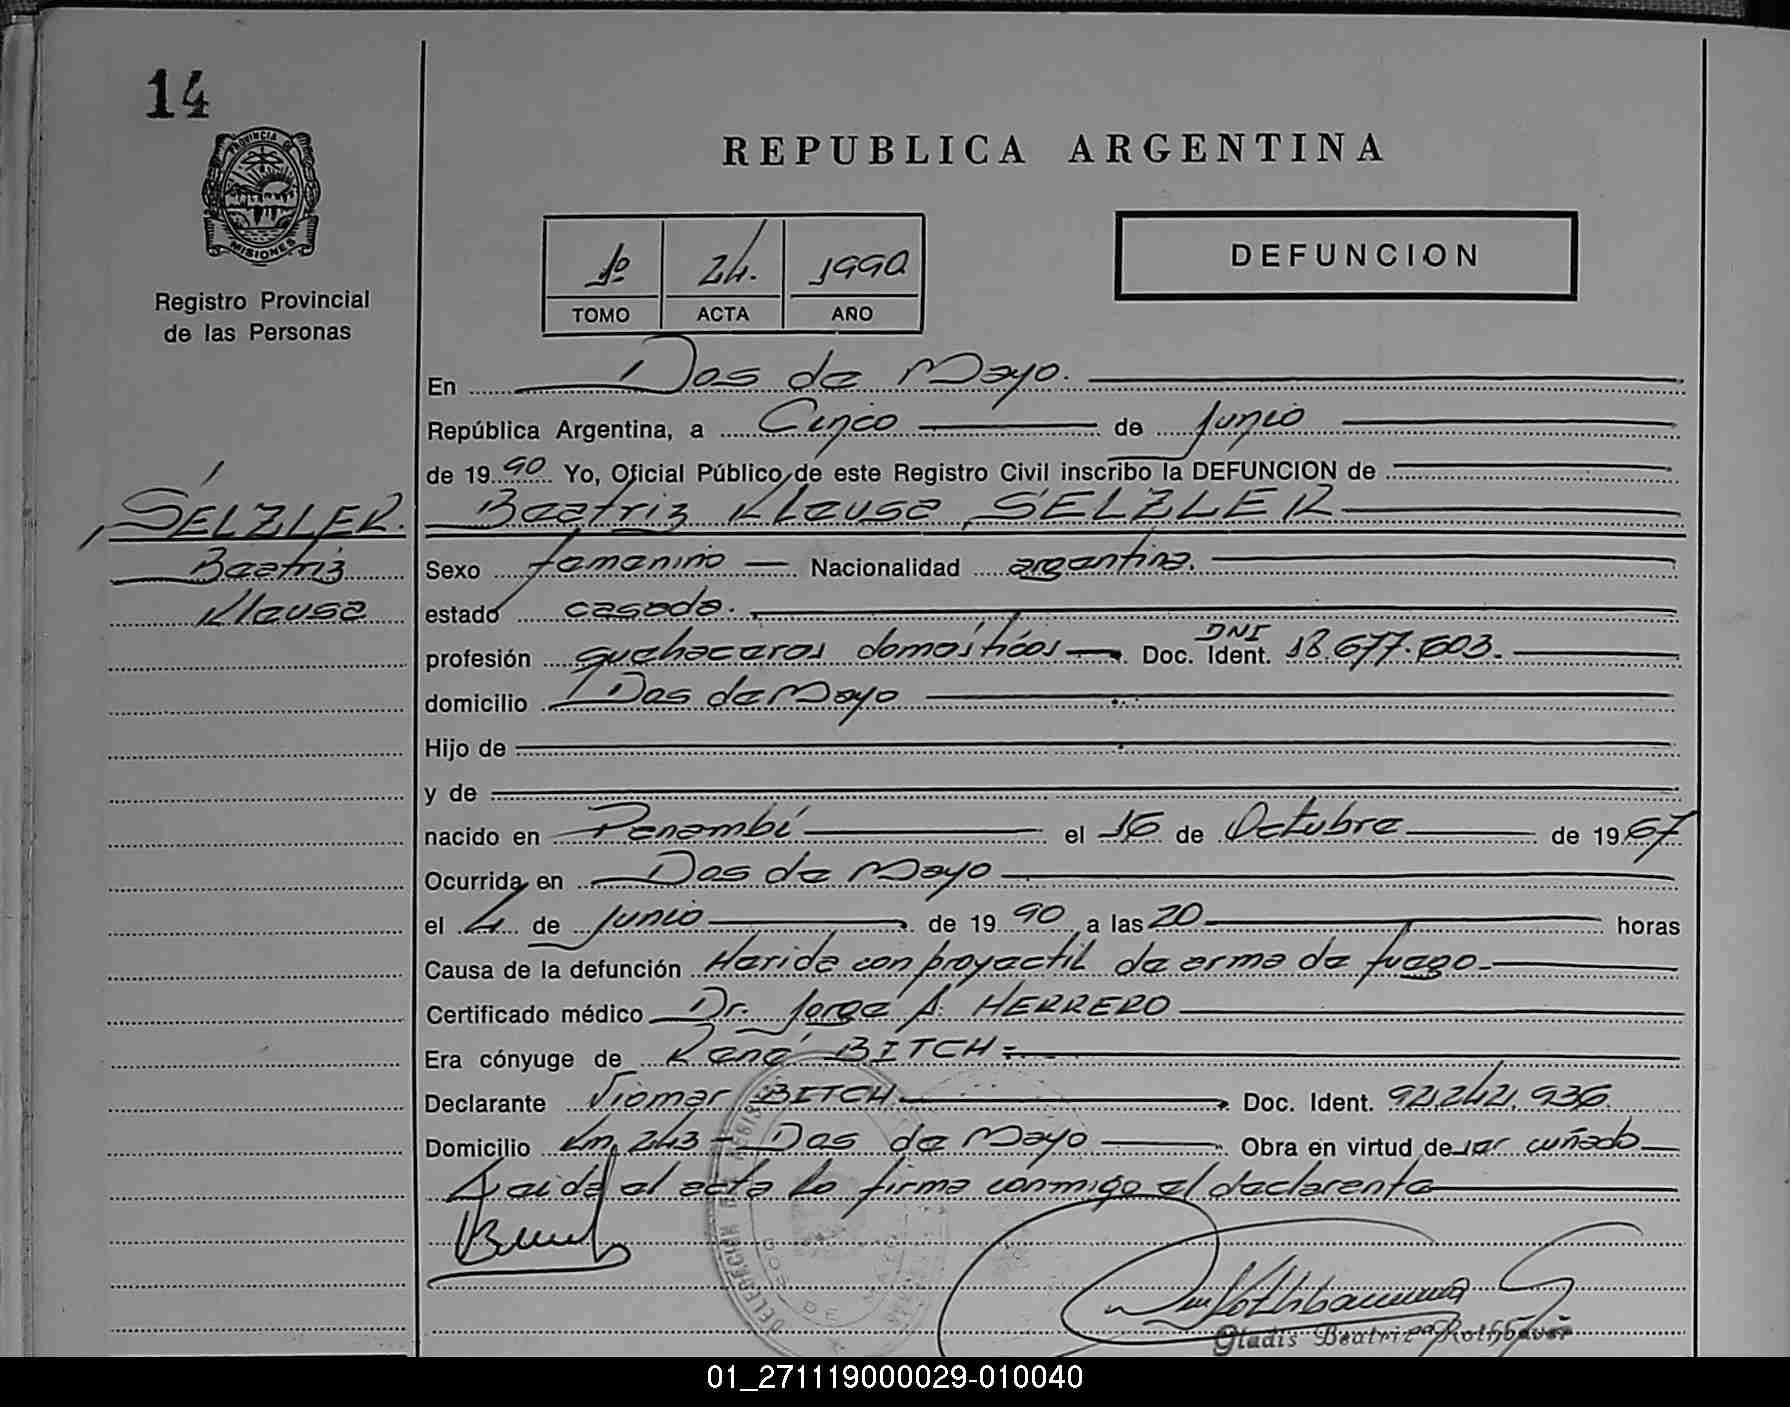 14
PROVINCIA DE
MISIONES
Registro Provincial
de las Personas
REPUBLICA ARGENTINA
1º 24. 1990
TOMO ACTA AÑO
DEFUNCION
En Dos de Mayo.
República Argentina, a Cinco de Junio
de 1990 Yo, Oficial Público de este Registro Civil inscribo la DEFUNCION de
SELZLER. Beatriz Kleusa SELZLER
Beatriz
Kleusa
Sexo femenino Nacionalidad argentina.
estado casada.
profesión quehaceres domésticos Doc. Ident. DNI 18.677.603.
domicilio Dos de Mayo
Hijo de
y de
nacido en Panambí el 16 de Octubre de 1967
Ocurrida en Dos de Mayo
el 4 de Junio de 1990 a las 20 horas
Causa de la defunción Herida con proyectil de arma de fuego.
Certificado médico Dr. Jorge A. HERRERO
Era cónyuge de René BITCH
Declarante Viomar BITCH Doc. Ident. 92.242.936
Domicilio Km 243 - Dos de Mayo Obra en virtud de ser cuñado
Leida el acta la firma conmigo el declarante
Gladis Beatriz Rothbauer
01_271119000029-010040